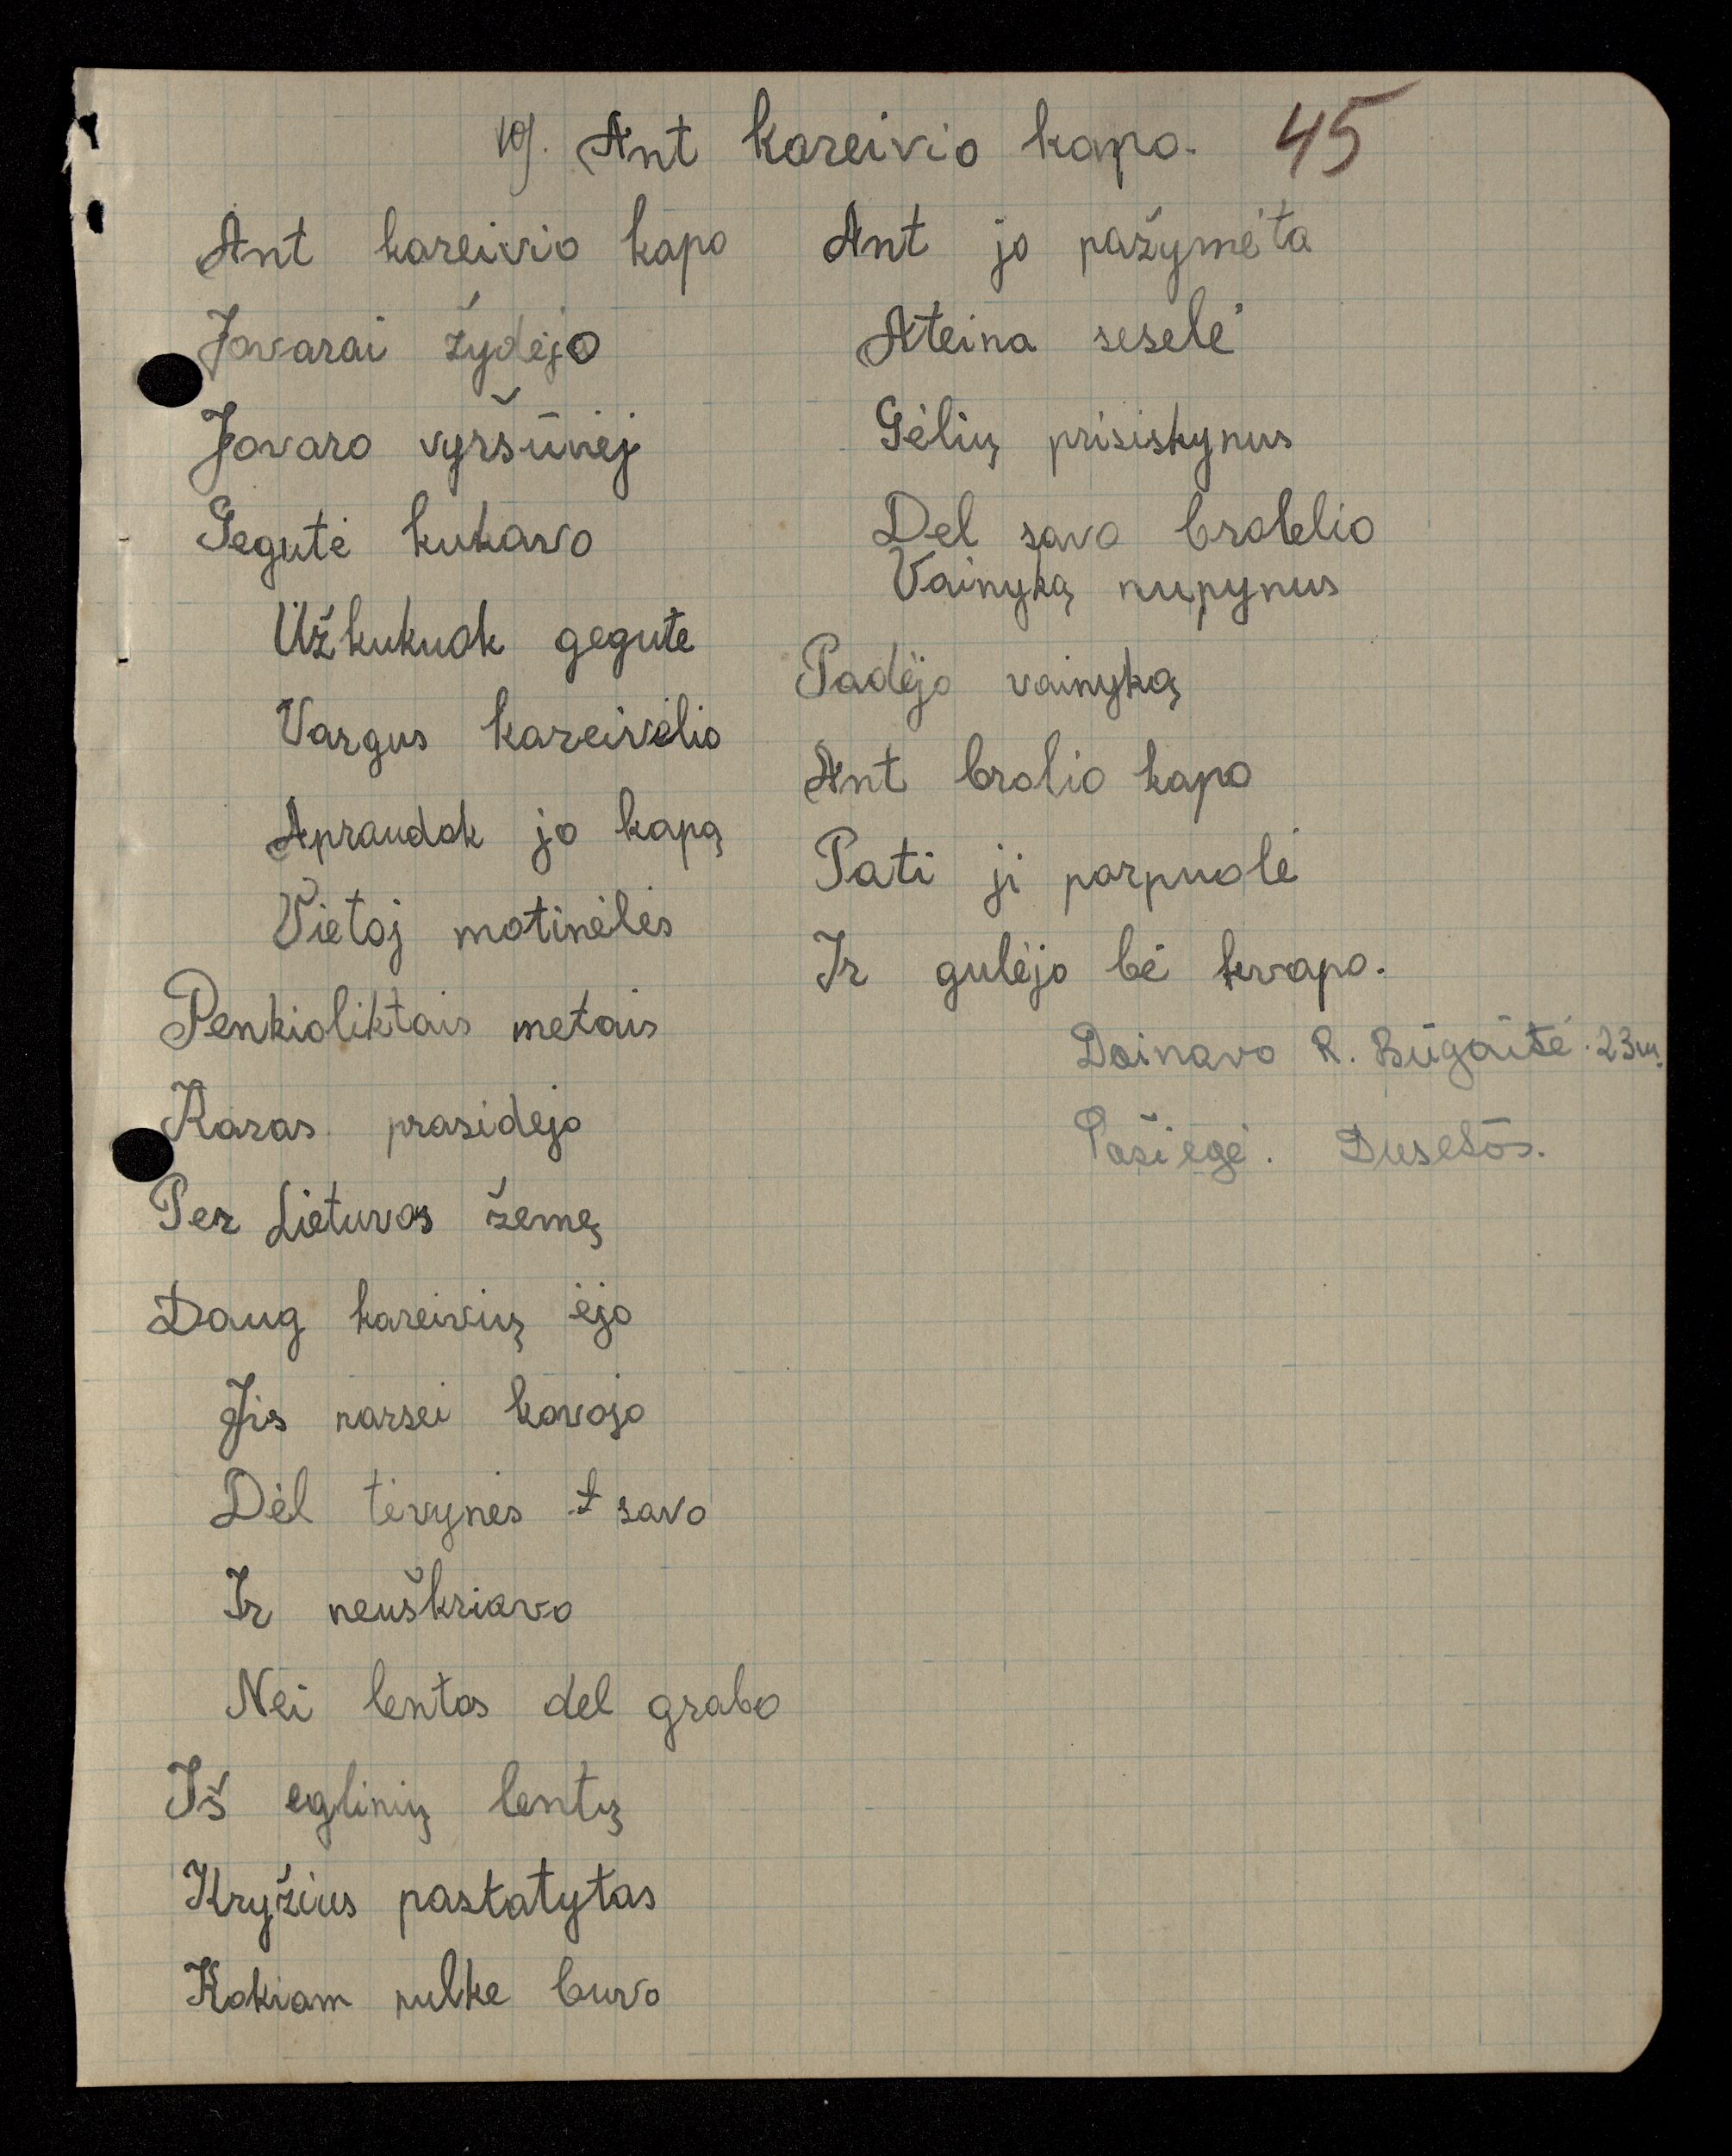 10). Ant kareivio kapo.
45
Ant kareivio kapo
Jovarai žydėjo
Jovaro vyršūnėj
Gegutė kukavo
Užkukuok gegute
Vargus kareivėlio
Apraudok jo kapą
Vietoj motinėlės
Penkioliktais metais
Karas prasidėjo
Per Lietuvos žemę
Daug kareivių ėjo
Jis narsei kovojo
Dėl tėvynės savo
Ir neuškriavo
Nei lentos del grabo
Iš eglinių lentų
Kryžius pastatytas
Kokiam pulke buvo
Ant jo pažymėta
Ateina seselė
Gėlių prisiskynus
Del savo brolelio
Vainyką nupynus
Padėjo vainyką
Ant brolio kapo
Pati ji parpuolė
Ir gulėjo bė kvapo.
Dainavo R. Būgaitė. 23 m.
Pašiegė. Dusetos.